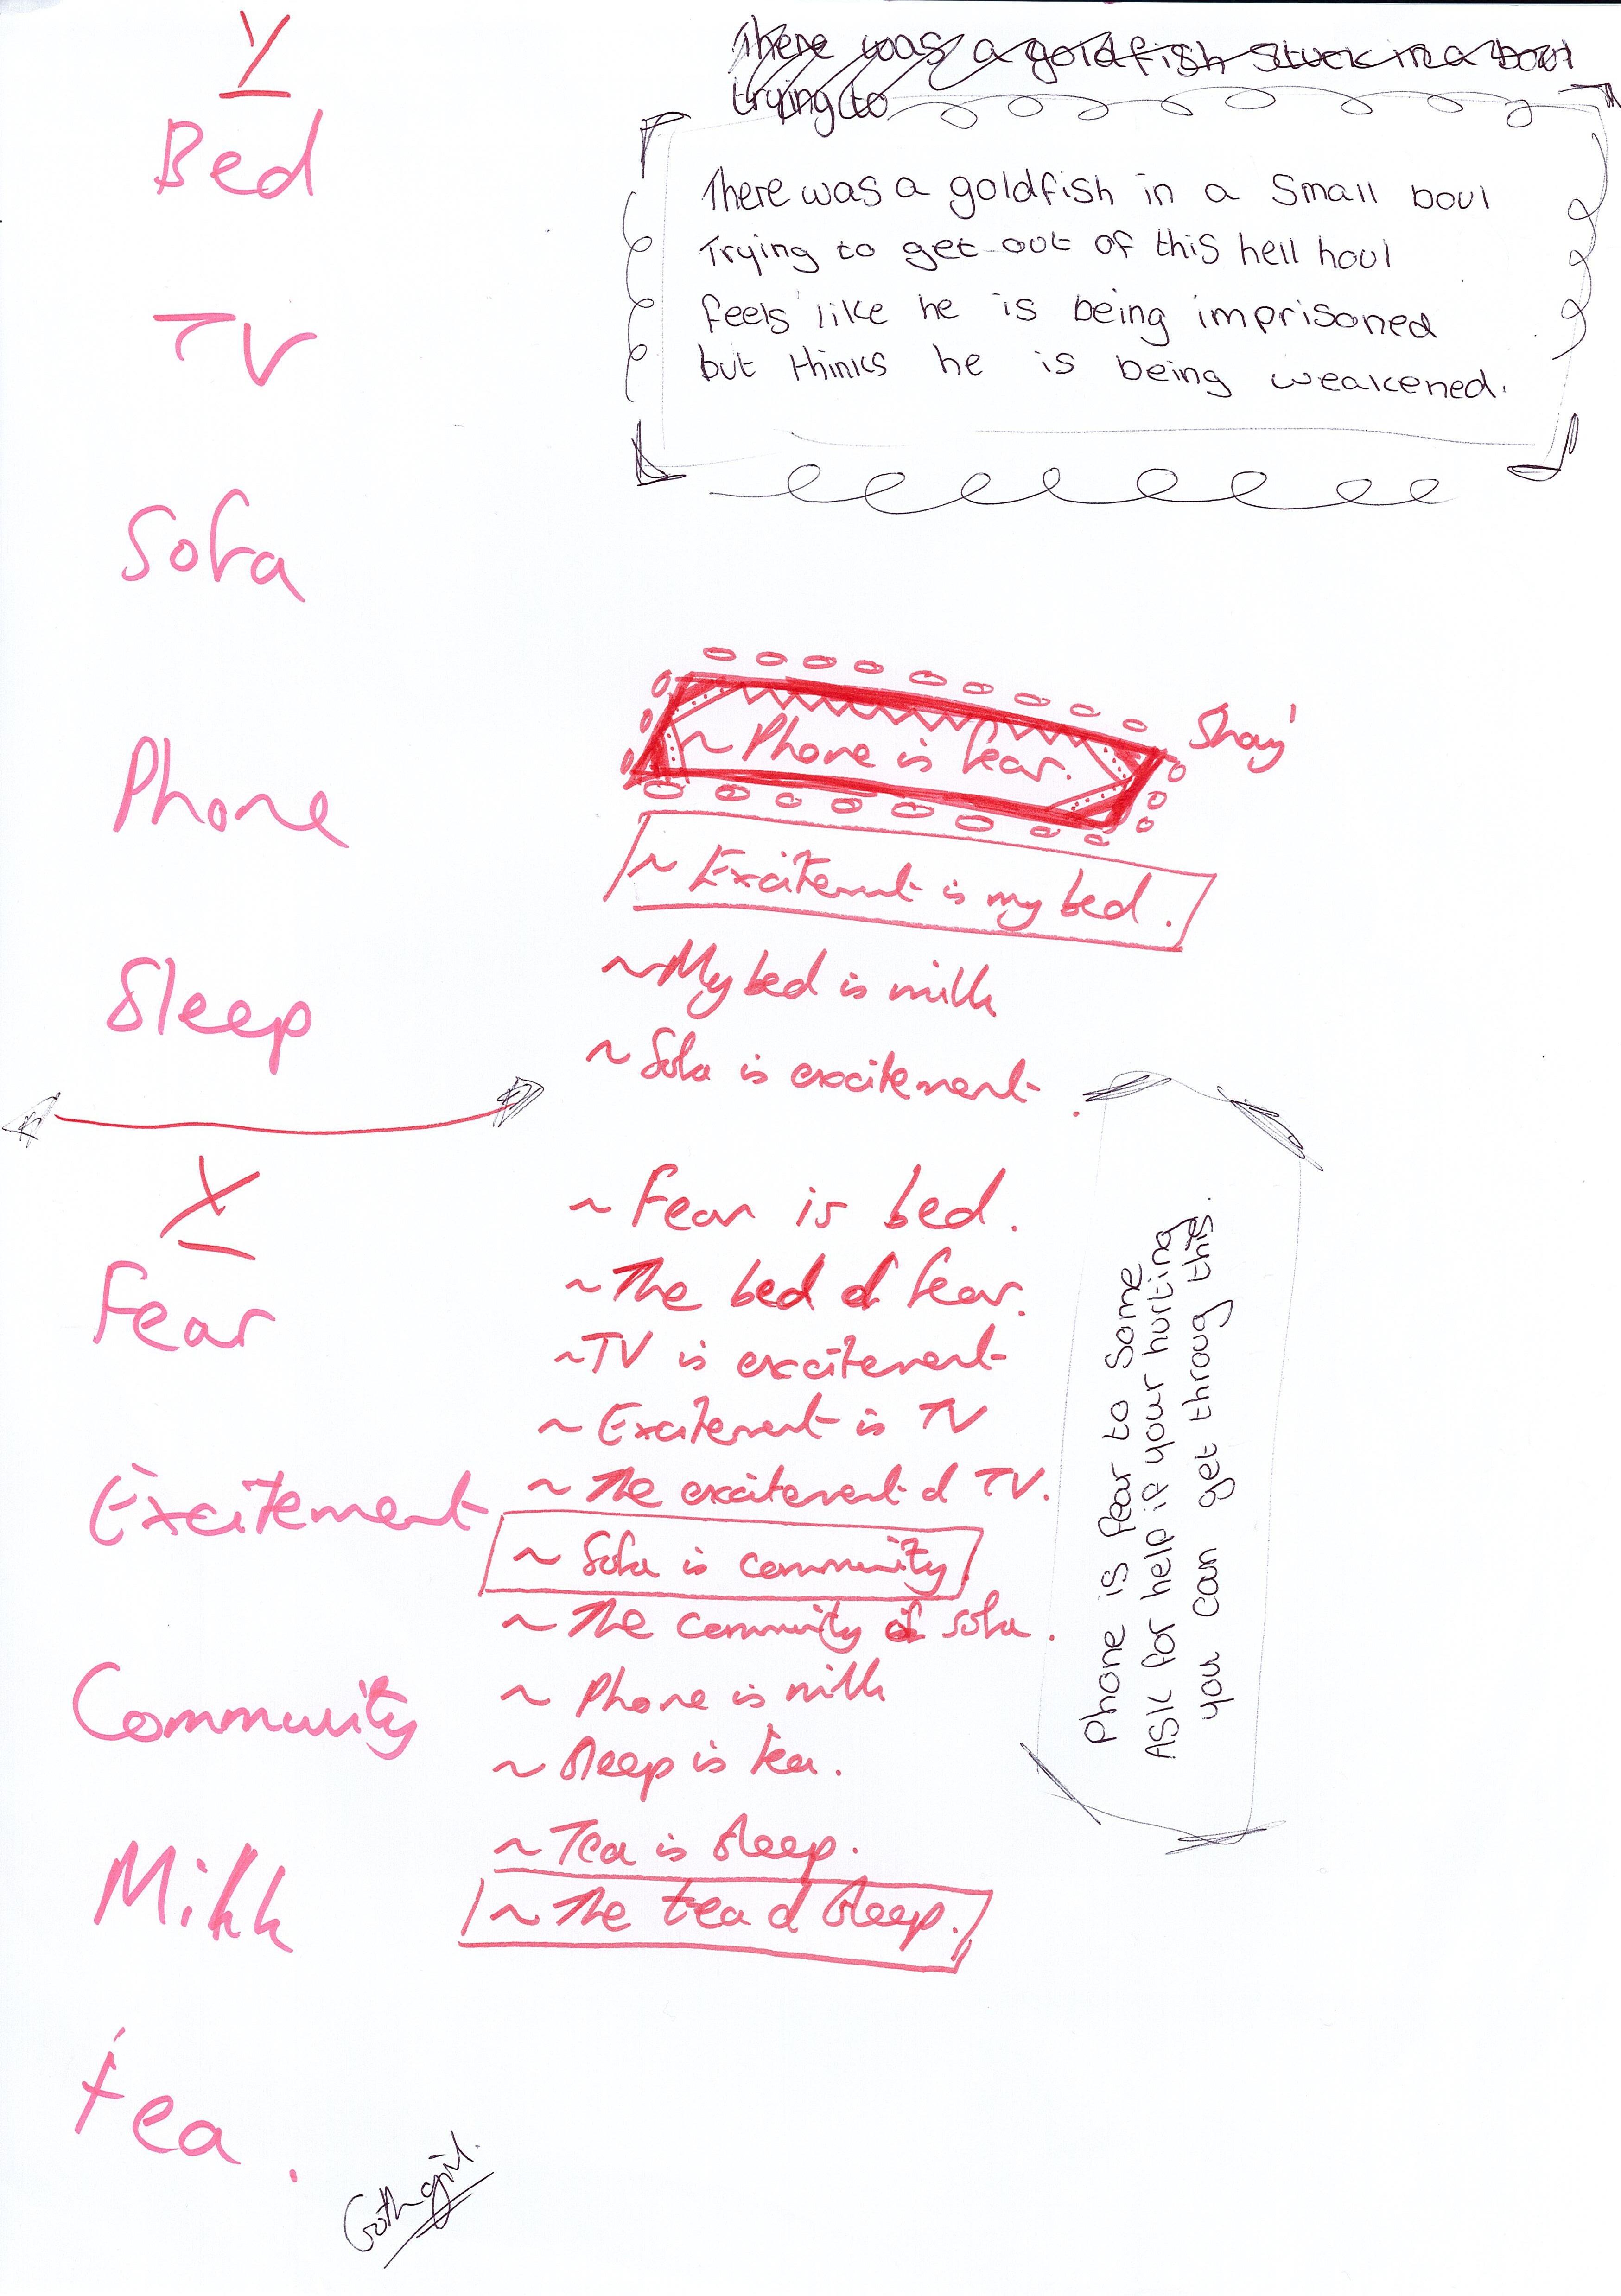 Y
Bed
TV
Sofa
Phone
Sleep
X
Fear
Excitement
Community
Milk
tea.
There was a goldfish stuck in a boul
trying to
There was a goldfish in a small boul
Trying to get out of this hell houl
feels like he is being imprisoned
but thinks he is being weakened.
~ Phone is fear.
~ Excitement is my bed.
~ My bed is milk
~ Sofa is excitement.
~ Fear is bed.
~ The bed of fear.
~ TV is excitement
~ Excitement is TV
~ The excitement of TV.
~ Sofa is community
~ The community of sofa.
~ Phone is milk
~ Sleep is tea.
~ Tea is sleep.
~ The tea of sleep.
Phone is fear to some
ASK for help if your hurting
you can get throug this.
Gothgirl.